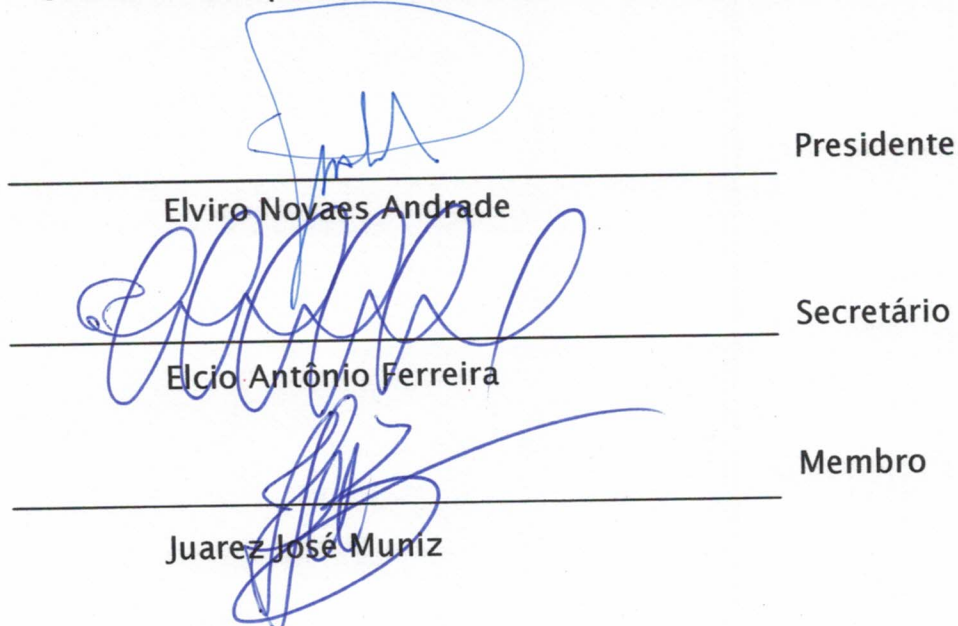 Presidente
Elviro Novaes Andrade
Secretário
Elcio Antônio Ferreira
Membro
Juarez José Muniz